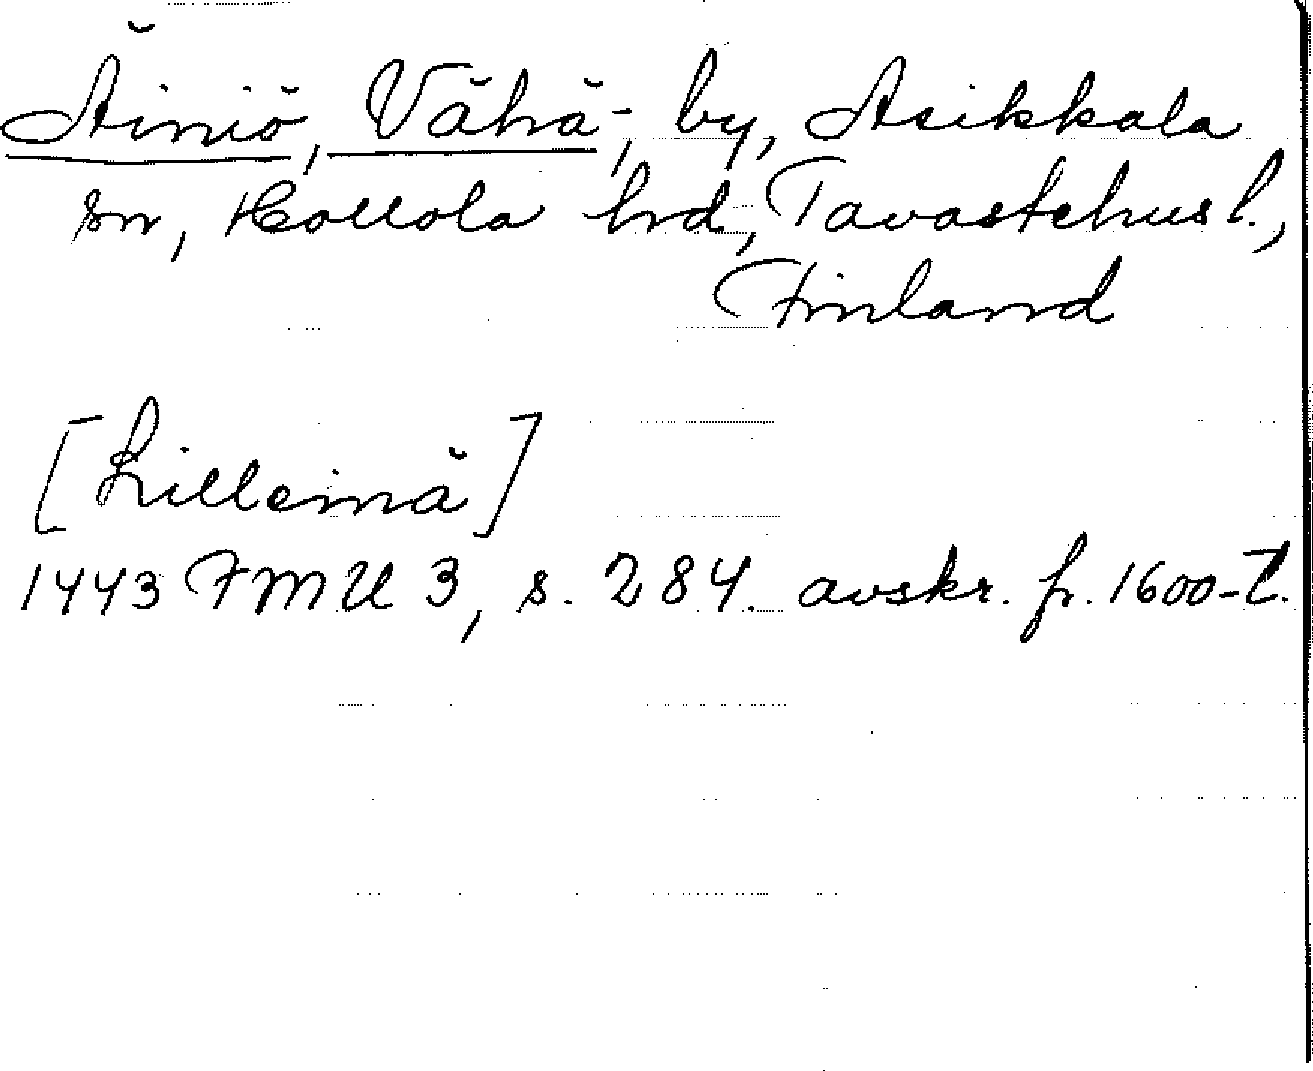 Äiniö, Vähä-, by, Asikkala
sn, Hollola hrd, Tavastehus l.,
Finland
[Lilleinä]
1443 FMU 3, s. 284. avskr. fr. 1600-t.